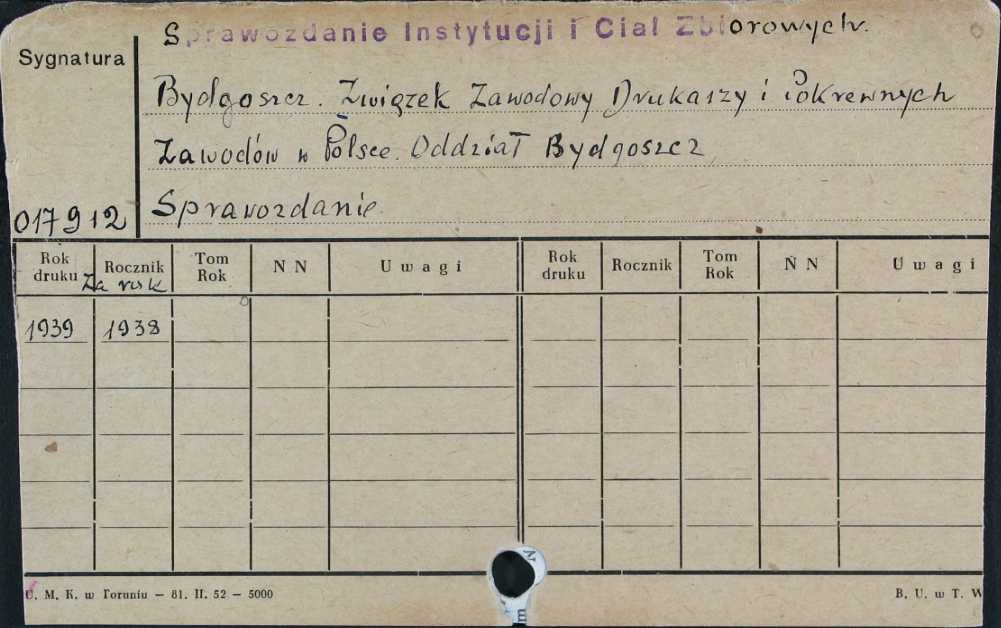 Sprawozdanie Instytucji i Ciał Zbiorowych.
Sygnatura
Bydgoszcz. Związek Zawodowy Drukarzy i Pokrewnych
Zawodów w Polsce. Oddział Bydgoszcz,
017912 Sprawozdanie
Rok druku Rocznik Tom Rok N N Uwagi Rok druku Rocznik Tom Rok N N Uwagi
Za rok
1939 1938
U. M. K. w Toruniu — 81. II. 52 — 5000 B. U. w T. W